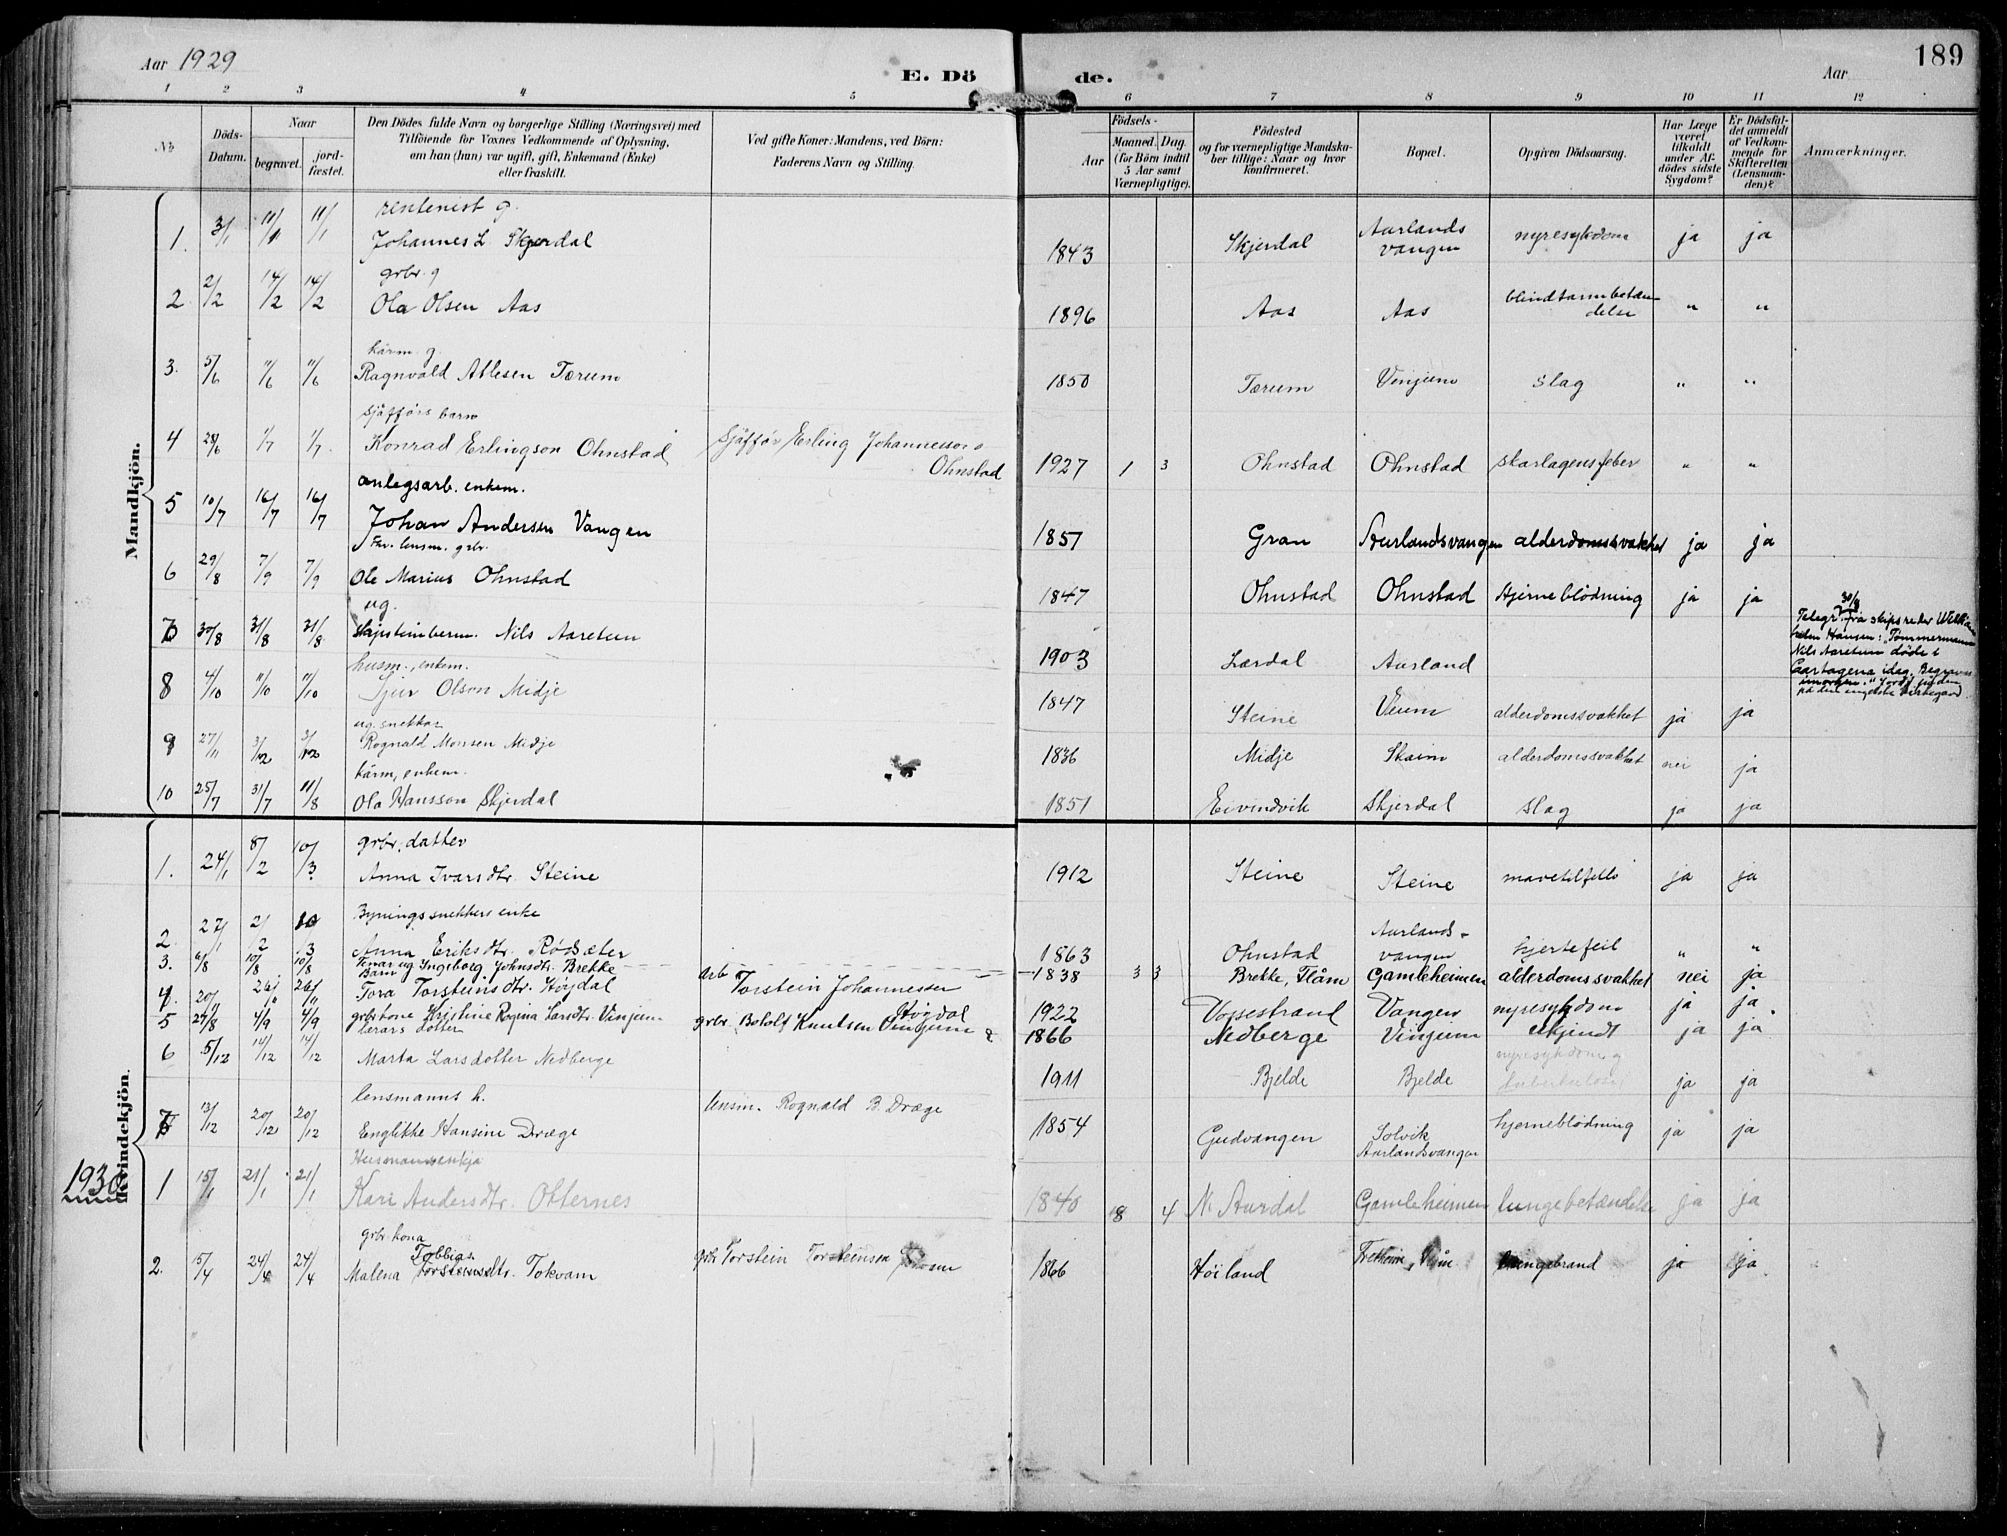 Aar 1929
E. Dö de.
Aar
189
1 2 3 4 5 6 7 8 9 10 11 12
No.
Döds-Datum.
Naar
begravet.
jord-fæstet.
Den Dödes fulde Navn og borgerlige Stilling (Næringsvei) med
Tilföiende for Voxnes Vedkommende af Oplysning,
om han (hun) var ugift, gift, Enkemand (Enke)
eller fraskilt.
Ved gifte Koner: Mandens, ved Börn:
Faderens Navn og Stilling.
Födsels-
Aar
Maaned. Dag.
(for Börn indtil
5 Aar samt
Værnepligtige).
Födested
og for værnepligtige Mandska-
ber tillige: Naar og hvor
konfirmeret.
Bopæl.
Opgiven Dödsaarsag.
Har Læge
været
tilkaldt
under Af-
dödes sidste
Sygdom?
Er Dödsfal-
det anmeldt
af Vedkom-
mende for
Skifteretten
(Lensman-
den)?
Anmærkninger.
Mandkjön.
rentenist g.
1. 3/1 11/1 11/1 Johannes L. Skjerdal 1843 Skjerdal Aurlands vangen nyresykdom ja ja
grbr. g
2 2/2 14/2 14/2 Ola Olsen Aas 1896 Aas Aas blindtarmbetæn-delse " "
kårm. g
3. 5/6 11/6 11/6 Ragnvald Atlesen Tærum 1850 Tærum Vinjum slag " "
sjåfførs barn
4 28/6 1/7 1/7 Konrad Erlingson Ohnstad Sjåffør Erling Johannesson Ohnstad 1927 1 3 Ohnstad Ohnstad skarlagensfeber " "
anlegsarb. enkem.
5 10/7 16/7 16/7 Johan Andersen Vangen 1857 Gran Aurlandsvangen alderdomssvakhet ja ja
Fhv. lensm. grbr.
6 29/8 7/9 7/9 Ole Marius Ohnstad 1847 Ohnstad Ohnstad Hjerneblödning ja ja
ug.
7 30/8 31/8 31/8 Skipstimberm. Nils Aaretun 1903 Lærdal Aurland
30/8
Telegr. fra skipsreder
Hansen: "Tømmermann
Nils Aaretun døde i
Cartagena idag. Begraves
imorgen."
på den engelske kirkegård.
husm., enkem.
8 4/10 11/10 11/10 Sjur Olson Midje 1847 Steine Veum alderdomssvakhet ja ja
ug. snekkar
9 27/11 3/12 3/12 Rognald Monsen Midje 1836 Midje Skaim alderdomssvakhet nei ja
kårm, enkem.
10 25/7 31/7 11/8 Ola Hansson Skjerdal 1851 Eivindvik Skjerdal slag ja ja
Kvindekjön.
grbr. datter
1. 24/1 8/2 10/3 Anna Ivarsdtr. Steine 1912 Steine Steine mavetilfelle ja ja
Bygningssnekkers enke
2 27/1 2/2 10/3 Anna Eriksdtr. Rødsæter 1863 Ohnstad Aurlands-vangen hjertefeil " "
3. 6/8 10/8 10/8 ug Ingeborg Johnsdtr. Brekke 1838 3 3 Brekke, Flåm Gamleheimen alderdomssvakhet nei ja
Barn
4. 20/11 26/11 26/11 Tora Torsteinsdtr. Høydal Arb Torstein Johannessen Høydal 1922 Vossestrand Vangen nyresykdom ja ja
5 27/8 4/9 4/9 grbr kone Kristine Regina Larsdtr. Vinjum grbr. Botolf Knutsen Vinjum 1866 Nedberge Vinjum ukjendt ja ja.
lærars dotter
6 5/12 14/12 14/12 Marta Larsdotter Nedberge 1911 Bjelde Bjelde nyresykdom og tuberkulose ja ja
lensmanns k.
7 13/12 20/12 20/12 Englikke Hansine Dræge lensm. Rognald B. Dræge 1854 Gudvangen Solvik Aurlandsvangen hjerneblödning ja ja
1930
Husmannsenkja
1 15/1 21/1 21/1 Kari Andersdtr. Otternes 1840 8 4 N. Aurdal Gamleheimen lungebetændelse ja ja
grbr. kona
Tobbias
2. 15/4 24/4 24/4 Malena Torsteinsdtr. Tokvam grbr Torstein Torsteinson 1866 Höiland Fretheim, Flåm ja ja